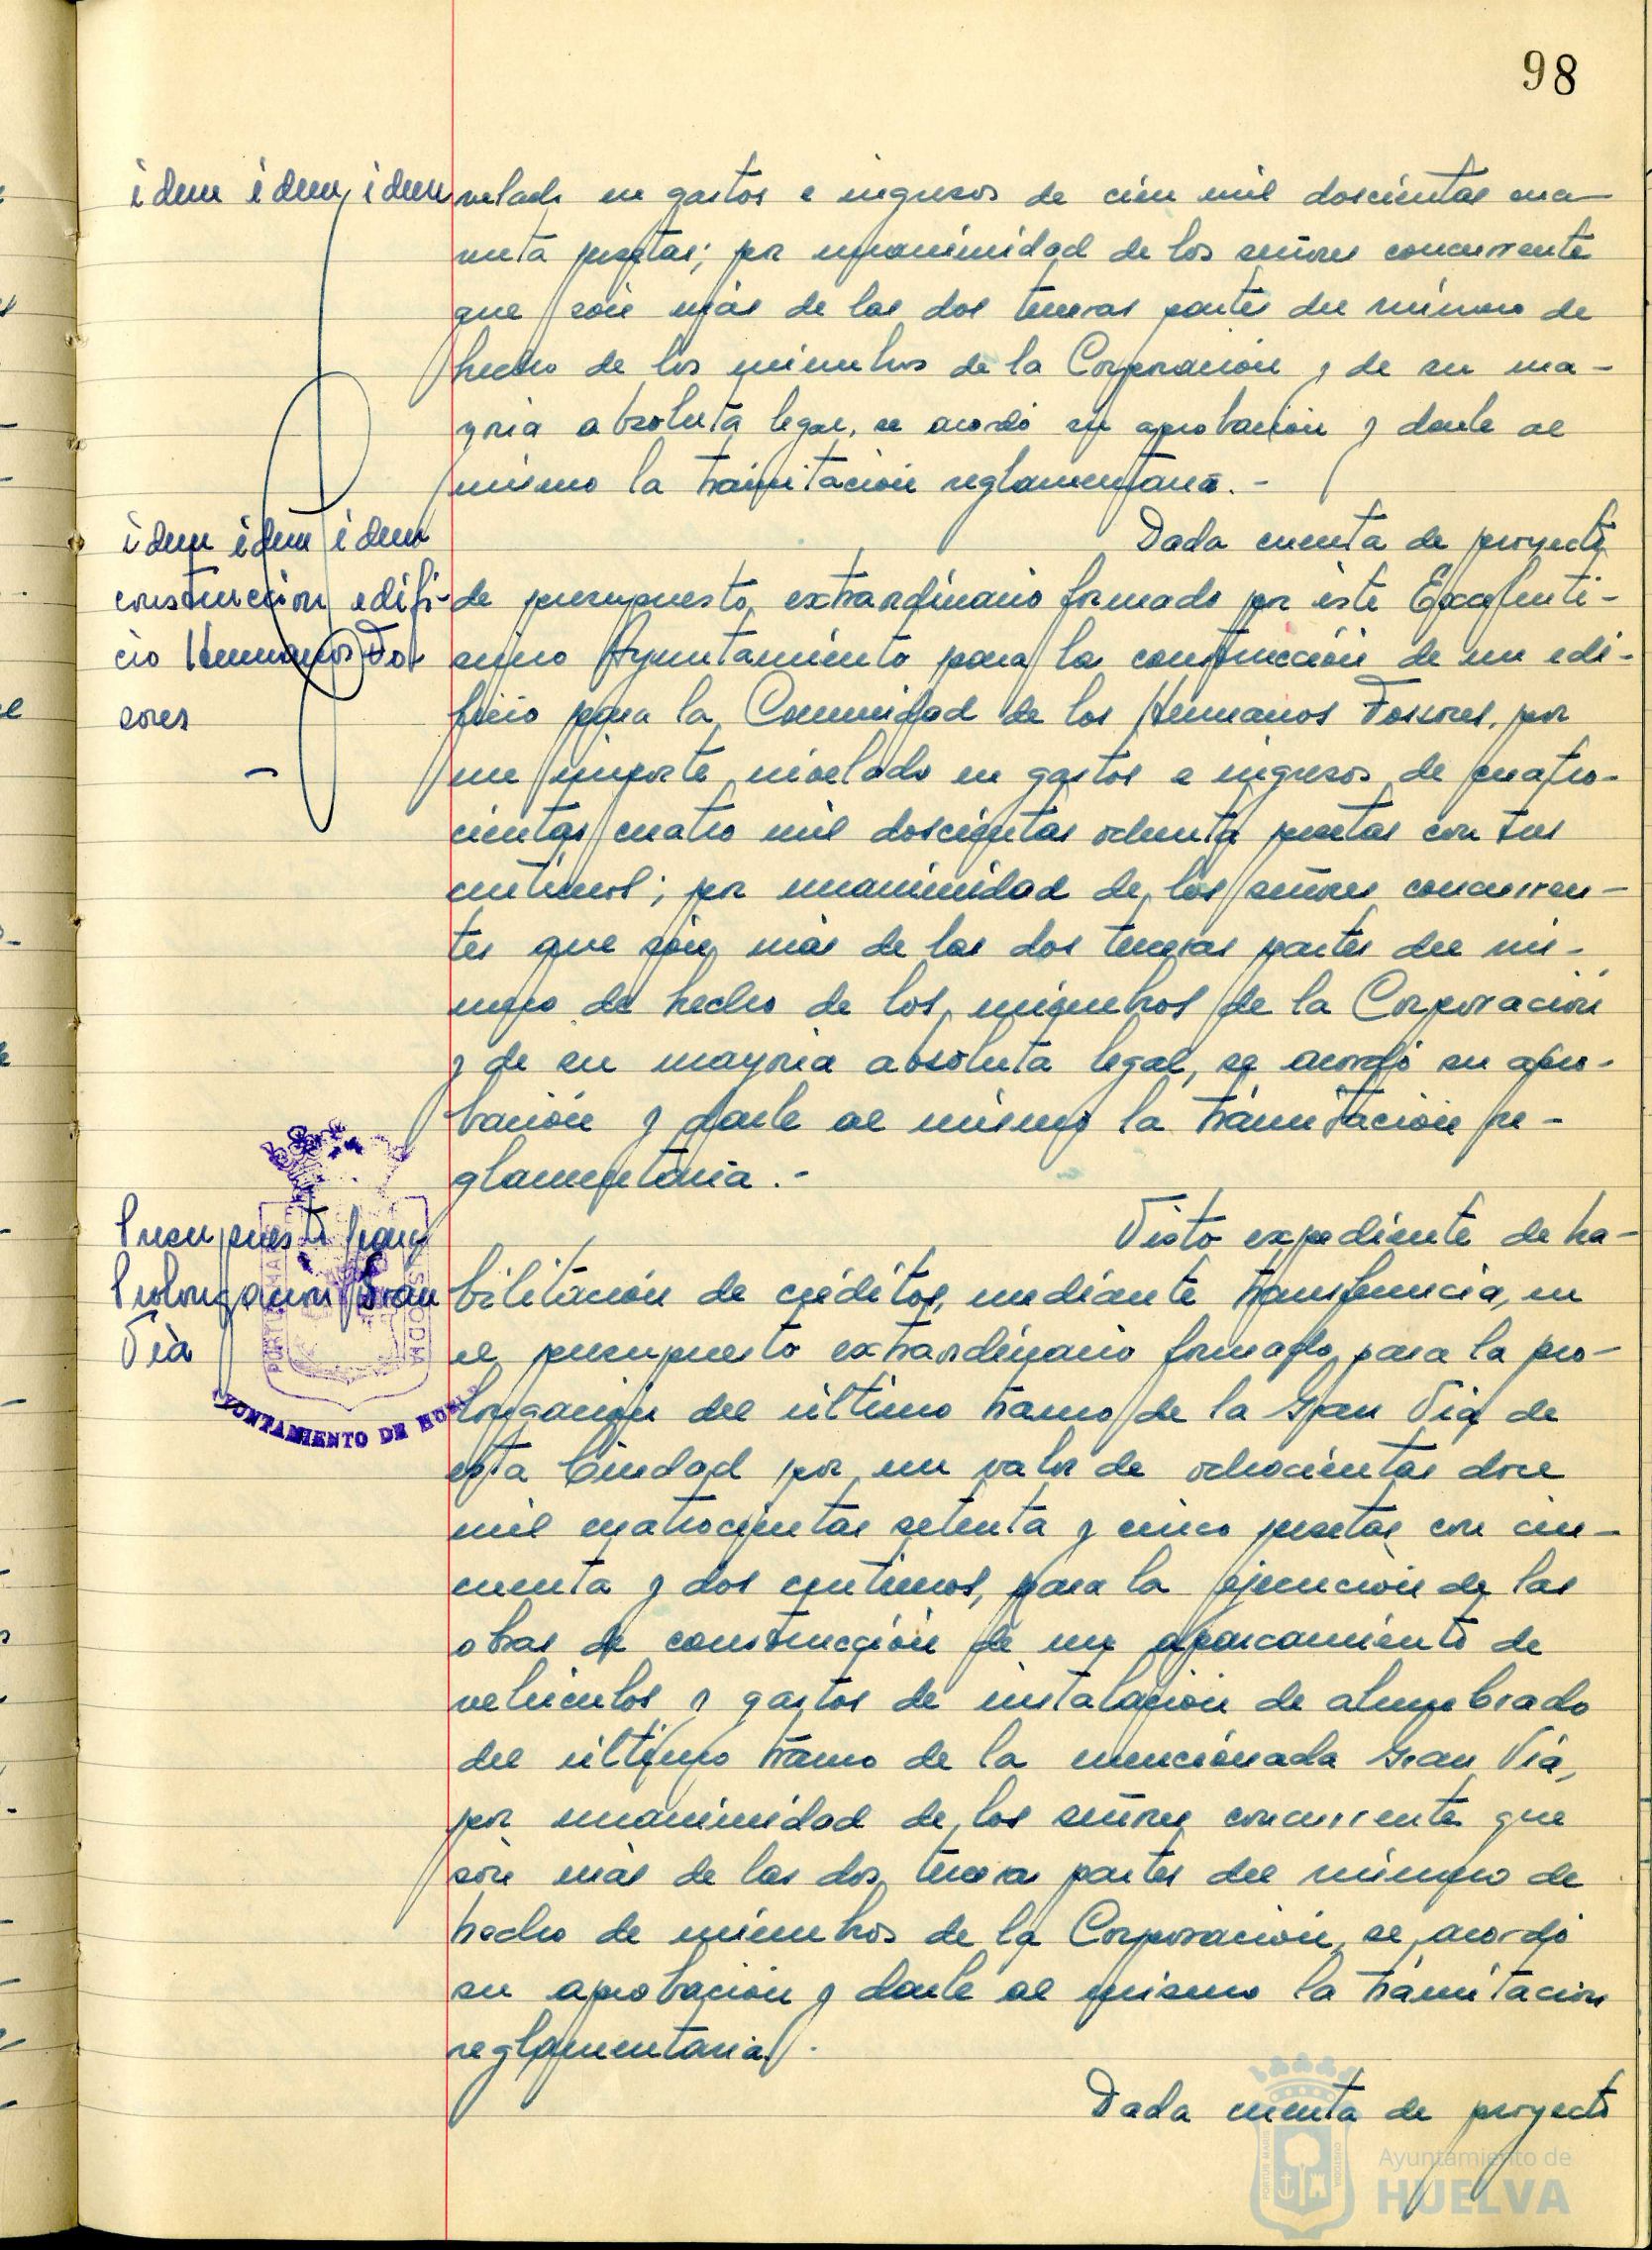 98
idem idem idem
nelado en gastos e ingresos de cien mil doscientas cua-
renta pesetas; por unanimidad de los señores concurrentes
que són más de las dos terceras partes del número de
hecho de los miembros de la Corporación y de su ma-
yoria absoluta legal, se acordó su aprobación y darle al
mismo la trámitación reglamentaria.-
idem idem idem
construccion edifi-
cio Hermanos Fos
sores
Dada cuenta de proyecto
de presupuesto extraordinario formado por éste Excelenti-
simo Ayuntamiento para la construcción de un edi-
ficio para la Comunidad de los Hermanos Fossores, por
un importe nivelado en gastos e ingresos de cuatro-
cientas cuatro mil doscientas ochenta pesetas con tres
centimos; por unanimidad de los señores concurren-
tes que són más de las dos terceras partes del nú-
mero de hecho de los miembros de la Corporación
y de su mayoria absoluta legal, se acordó su apro-
bación y darle al mismo la trámitación re-
glamentaria.-
Presupuesto para
Prolongacion Gran
Via
PORTUS MARIS
CUSTODIA
AYUNTAMIENTO DE HUELVA
Visto expediente de ha-
bilitación de créditos, mediante transferencia, en
el presupuesto extraordinario formado para la pro-
longación del último tramo de la Gran Via de
esta Ciudad por un valor de ochocientas doce
mil cuatrocientas setenta y cinco pesetas con cin-
cuenta y dos centimos, para la ejecución de las
obras de construcción de un aparcamiento de
vehiculos y gastos de instalación de alumbrado
del último tramo de la mencionada Gran Via,
por unanimidad de los señores concurrentes que
són más de las dos terceras partes del número de
hecho de miembros de la Corporación, se acordó
su aprobación y darle al mismo la trámitación
reglamentaria.
Dada cuenta de proyecto
PORTUS MARIS
CUSTODIA
Ayuntamiento de
HUELVA